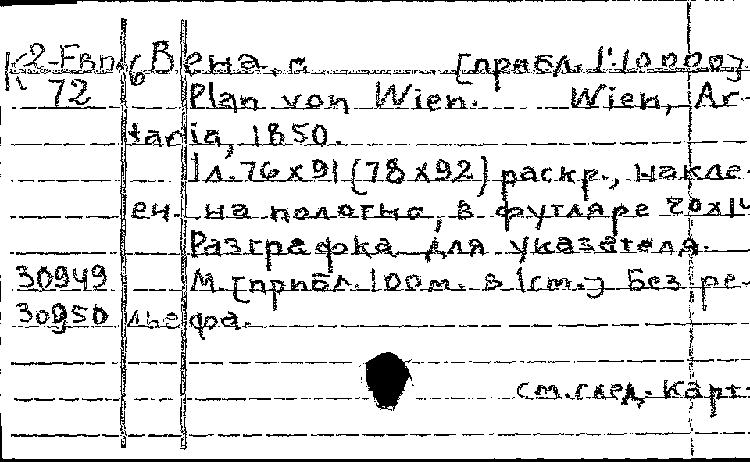 К 2-Евр. 6 Вена, г. [прибл. 1:10000]
72 Plan von Wien. Wien, Ar-
taria, 1850.
1 л. 76x91 (78x92) раскр., накле-
ен. на полотно, в футляре 20x14
Разграфка для указателя.
30949 М. [прибл. 100м. в 1см.] Без ре-
30950 льефа.
см. след. карт.